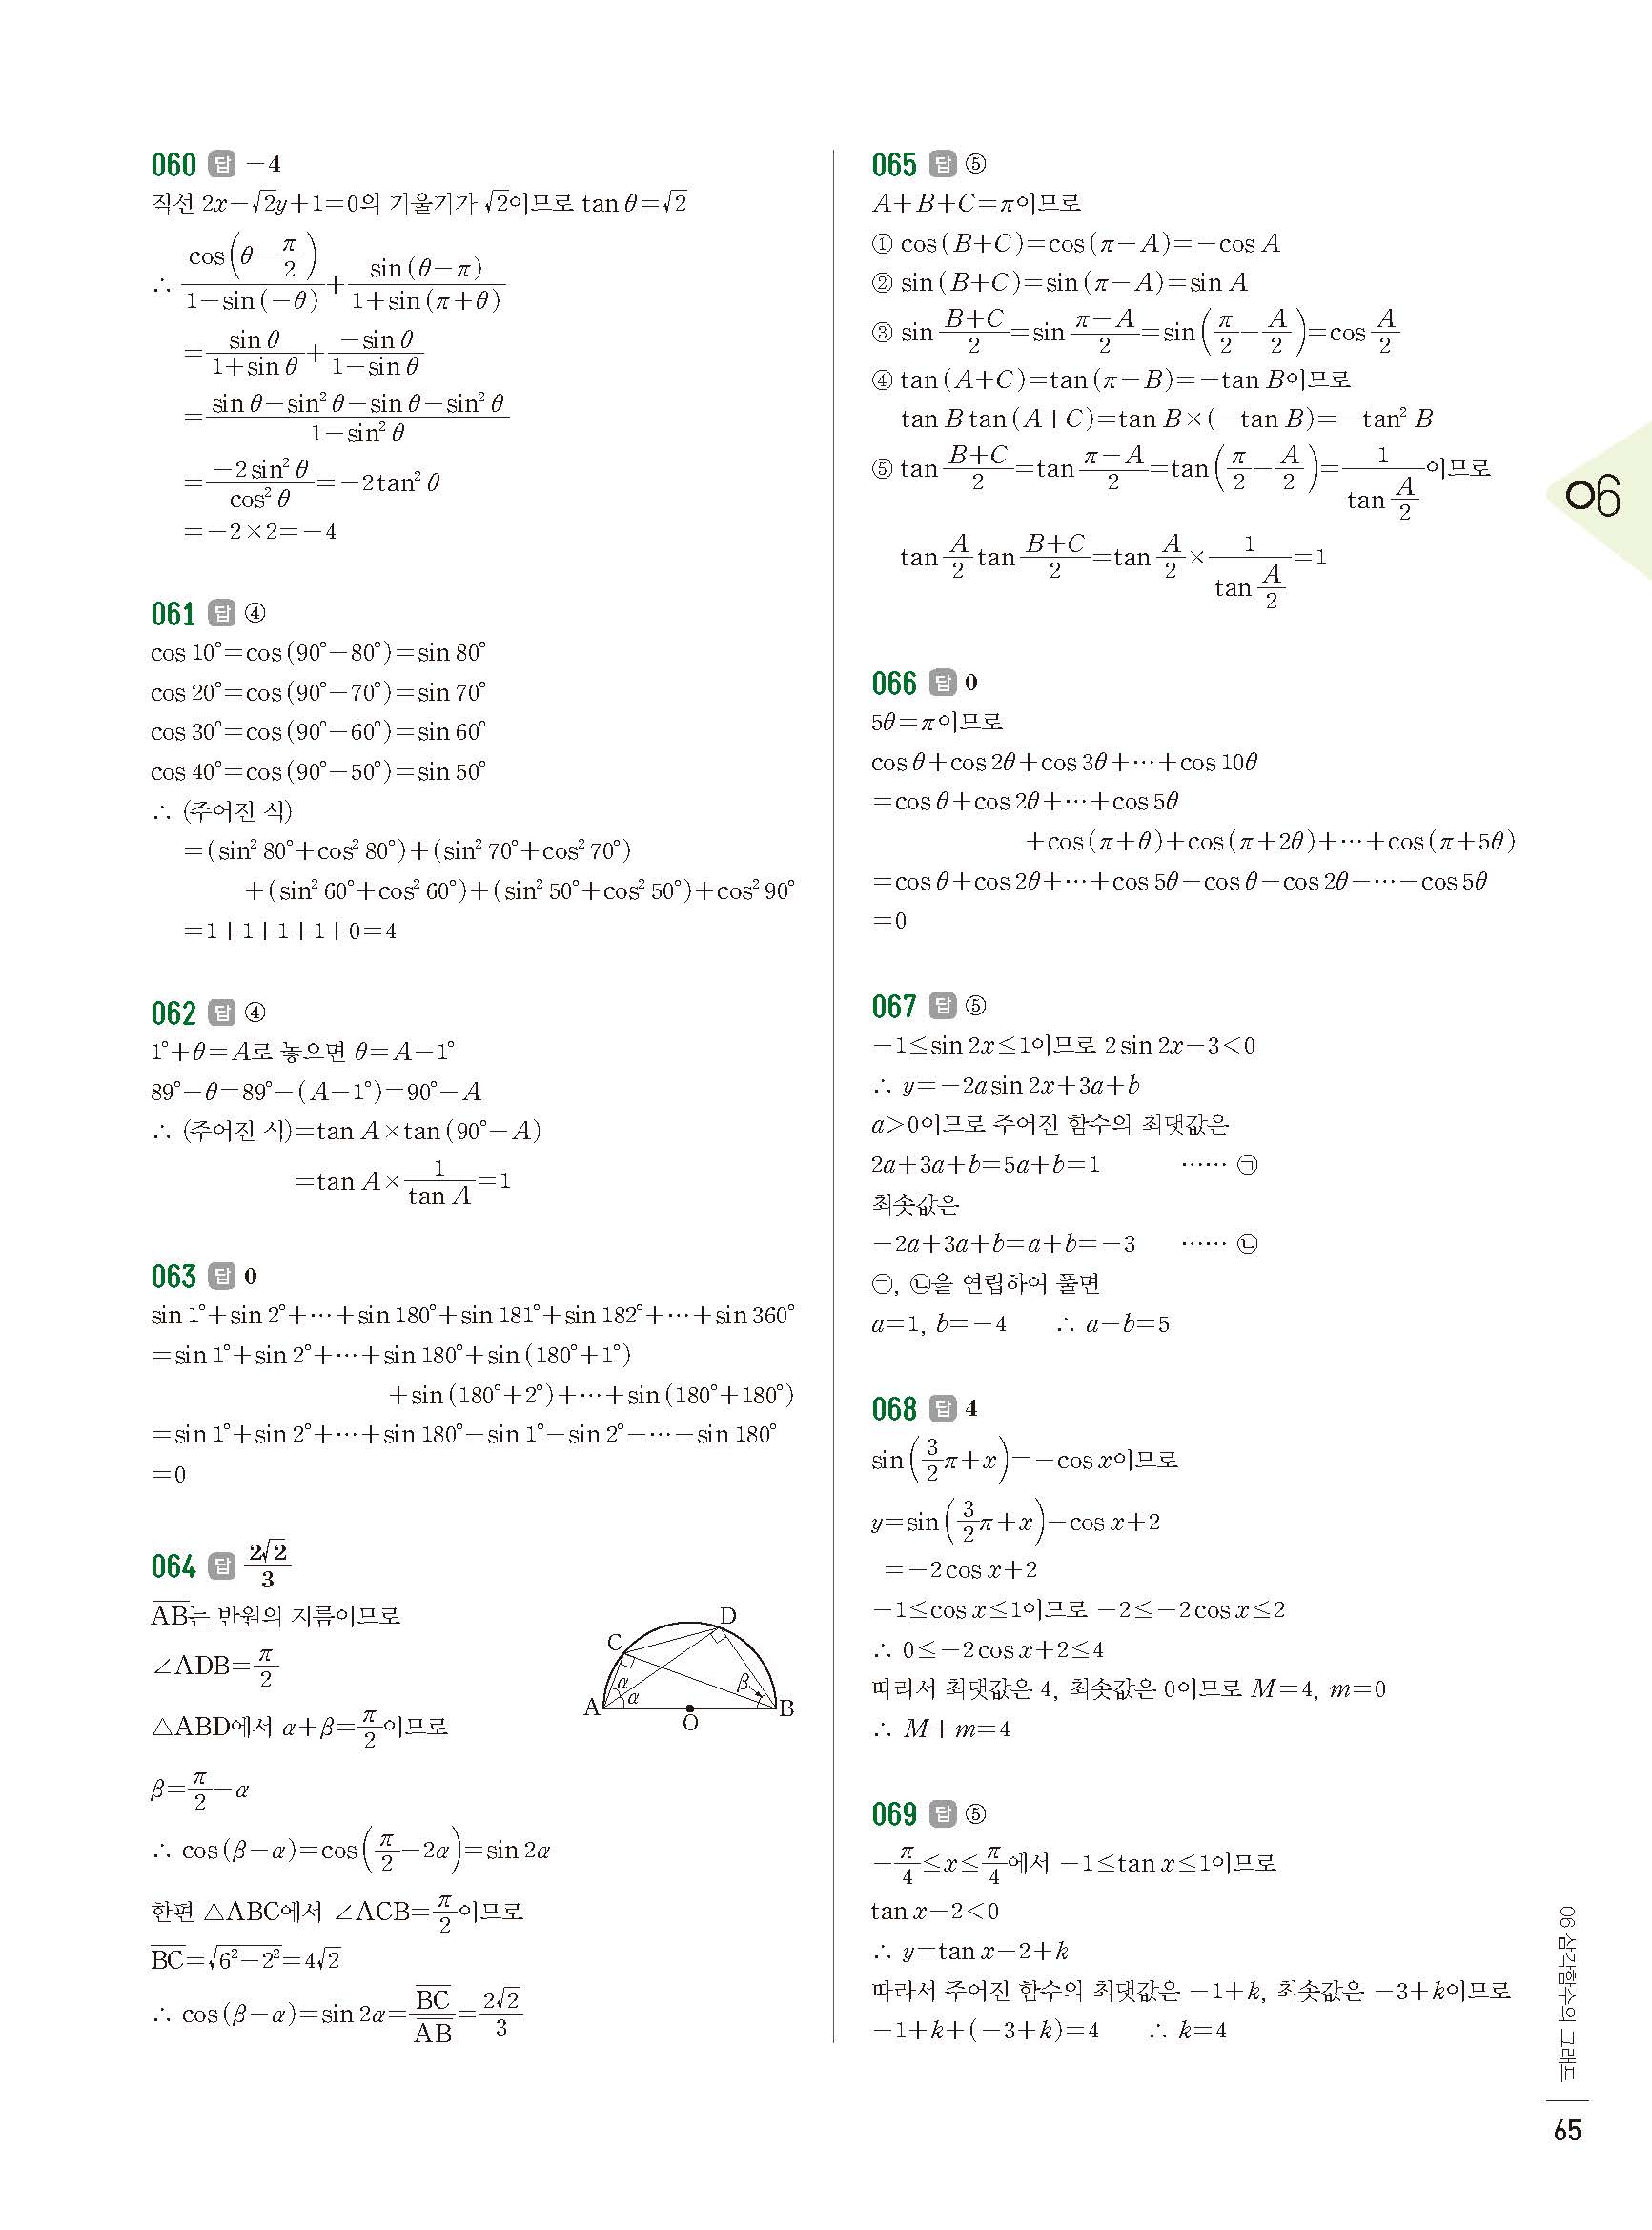 060 답 -4
직선 2x-√2y+1=0의 기울기가 √2이므로 tan θ=√2
∴ cos(θ-π/2)/(1-sin(-θ))+sin(θ-π)/(1+sin(π+θ))
=sin θ/(1+sin θ)+(-sin θ)/(1-sin θ)
=(sin θ-sin² θ-sin θ-sin² θ)/(1-sin² θ)
=(-2 sin² θ)/(cos² θ)=-2 tan² θ
=-2×2=-4
061 답 ④
cos 10°=cos(90°-80°)=sin 80°
cos 20°=cos(90°-70°)=sin 70°
cos 30°=cos(90°-60°)=sin 60°
cos 40°=cos(90°-50°)=sin 50°
∴ (주어진 식)
=(sin² 80°+cos² 80°)+(sin² 70°+cos² 70°)
+(sin² 60°+cos² 60°)+(sin² 50°+cos² 50°)+cos² 90°
=1+1+1+1+0=4
062 답 ④
1°+θ=A로 놓으면 θ=A-1°
89°-θ=89°-(A-1°)=90°-A
∴ (주어진 식)=tan A×tan(90°-A)
=tan A×1/tan A=1
063 답 0
sin 1°+sin 2°+⋯+sin 180°+sin 181°+sin 182°+⋯+sin 360°
=sin 1°+sin 2°+⋯+sin 180°+sin(180°+1°)
+sin(180°+2°)+⋯+sin(180°+180°)
=sin 1°+sin 2°+⋯+sin 180°-sin 1°-sin 2°-⋯-sin 180°
=0
064 답 2√2/3
A̅B̅는 반원의 지름이므로
∠ADB=π/2
△ABD에서 α+β=π/2이므로
β=π/2-α
∴ cos(β-α)=cos(π/2-2α)=sin 2α
한편 △ABC에서 ∠ACB=π/2이므로
B̅C̅=√(6²-2²)=4√2
∴ cos(β-α)=sin 2α=B̅C̅/A̅B̅=2√2/3
D
C
α
α
β
A
O
B
065 답 ⑤
A+B+C=π이므로
① cos(B+C)=cos(π-A)=-cos A
② sin(B+C)=sin(π-A)=sin A
③ sin (B+C)/2=sin (π-A)/2=sin(π/2-A/2)=cos A/2
④ tan(A+C)=tan(π-B)=-tan B이므로
tan B tan(A+C)=tan B×(-tan B)=-tan² B
⑤ tan (B+C)/2=tan (π-A)/2=tan(π/2-A/2)=1/(tan A/2)이므로
tan A/2 tan (B+C)/2=tan A/2×1/(tan A/2)=1
066 답 0
5θ=π이므로
cos θ+cos 2θ+cos 3θ+⋯+cos 10θ
=cos θ+cos 2θ+⋯+cos 5θ
+cos(π+θ)+cos(π+2θ)+⋯+cos(π+5θ)
=cos θ+cos 2θ+⋯+cos 5θ-cos θ-cos 2θ-⋯-cos 5θ
=0
067 답 ⑤
-1≤sin 2x≤1이므로 2 sin 2x-3<0
∴ y=-2a sin 2x+3a+b
a>0이므로 주어진 함수의 최댓값은
2a+3a+b=5a+b=1 ⋯⋯ ㉠
최솟값은
-2a+3a+b=a+b=-3 ⋯⋯ ㉡
㉠, ㉡을 연립하여 풀면
a=1, b=-4 ∴ a-b=5
068 답 4
sin(3/2π+x)=-cos x이므로
y=sin(3/2π+x)-cos x+2
=-2 cos x+2
-1≤cos x≤1이므로 -2≤-2 cos x≤2
∴ 0≤-2 cos x+2≤4
따라서 최댓값은 4, 최솟값은 0이므로 M=4, m=0
∴ M+m=4
069 답 ⑤
-π/4≤x≤π/4에서 -1≤tan x≤1이므로
tan x-2<0
∴ y=tan x-2+k
따라서 주어진 함수의 최댓값은 -1+k, 최솟값은 -3+k이므로
-1+k+(-3+k)=4 ∴ k=4
06
06 삼각함수의 그래프
65